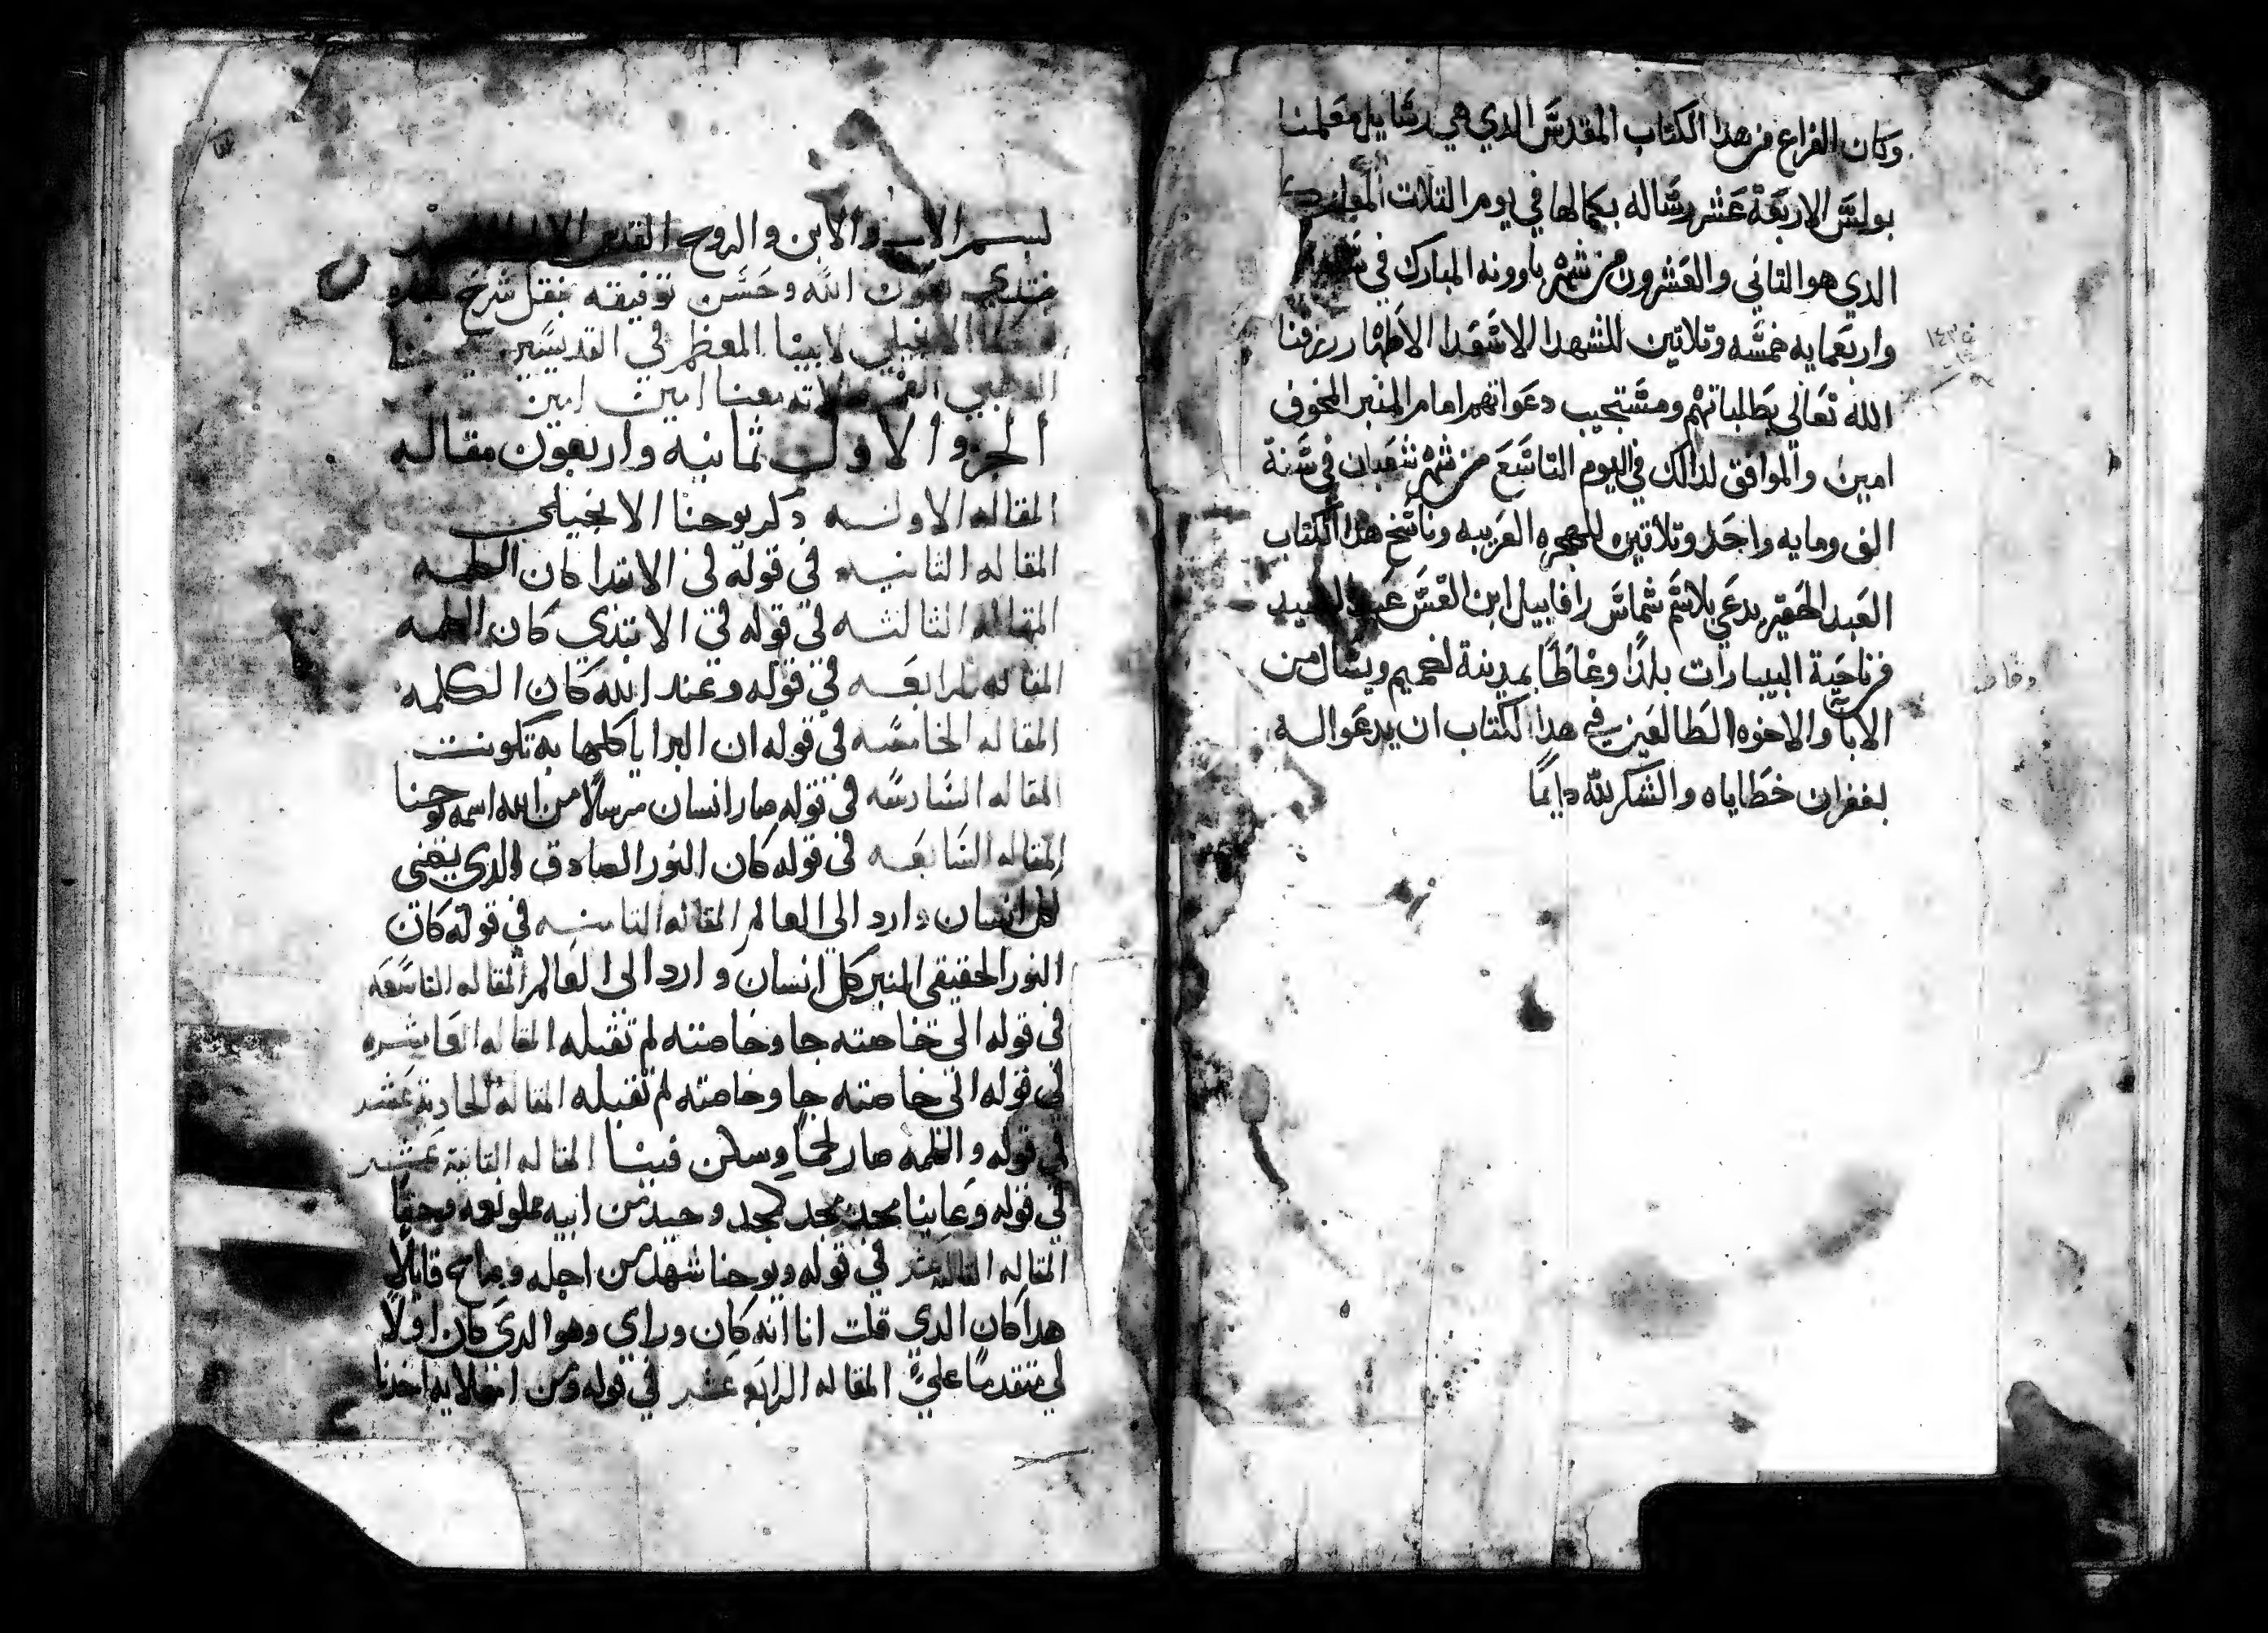 وكان الفراغ من هدا الكتاب المقدس الدي هي رسايل معلمنا
بولس الاربعة عشر رساله بكمالها في يوم التلات المبارك
الدي هو التاني والعشرون من شهر باوونه المبارك في
واربعمايه خمسه وتلاتين للشهدا الاسعدا الاطهار رزقنا
الله تعالي بطلباتهم ومستجيب دعواتهم امام المنبر المخوف
امين والموافق لدالك في اليوم التاسع من شهر شعبان في سنة
الف ومايه واحد وتلاتين للهجره العربيه وناسخ هدا الكتاب
العبد الحقير يدعي بلاسم شماس رافاييل ابن القس عبد
من ناحية البيارات بلدًا وغاطًا بمدينة اخميم ويسال من
الابا والاخوه الطالعين في هدا الكتاب ان يدعوا له
بغفران خطاياه والشكر لله دايمًا
١٤٣٥
بسم الاب والابن والروح القدس الاله
نبتدي بعون الله وحسن توفيقه بنقل شرح
الانجيلي لابينا المعظم في القديسين
معنا امين امين
الجزو الاول ثمانيه واربعون مقاله
المقاله الاوله دكر يوحنا الانجيلي
المقاله التانيه في قوله في الابتدا كان الكلمه
المقاله الثالثه في قوله في الابتدي كان الكلمه
المقاله الرابعه في قوله وعند الله كان الكلمه
المقاله الخامسه في قوله ان البرايا كلها به تكونت
المقاله السادسه في قوله صار انسان مرسلًا من الله اسمه يوحنا
المقاله السابعه في قوله كان النور الصادق الدي يضي
لكل انسان وارد الي العالم المقاله التامنه في قوله كان
النور الحقيقي المنير كل انسان وارد الى العالم المقاله التاسعه
في قوله الي خاصته جا وخاصته لم تقبله المقاله العاشره
في قوله الي خاصته جا وخاصته لم تقبله المقاله الحادية عشر
في قوله والكلمه صار لحمًا وسكن فينا المقاله التانية عشر
في قوله وعاينا مجده مجد كمجد وحيد من ابيه مملو نعمه وحقًا
المقاله التالته عشر في قوله ويوحنا شهد من اجله وصاح قايلًا
هدا كان الدي قلت انا انه كان وراي وهو الدي كان اولًا
لي متقدمًا عليّ المقاله الرابعه عشر في قوله ومن امتلايه اخدنا